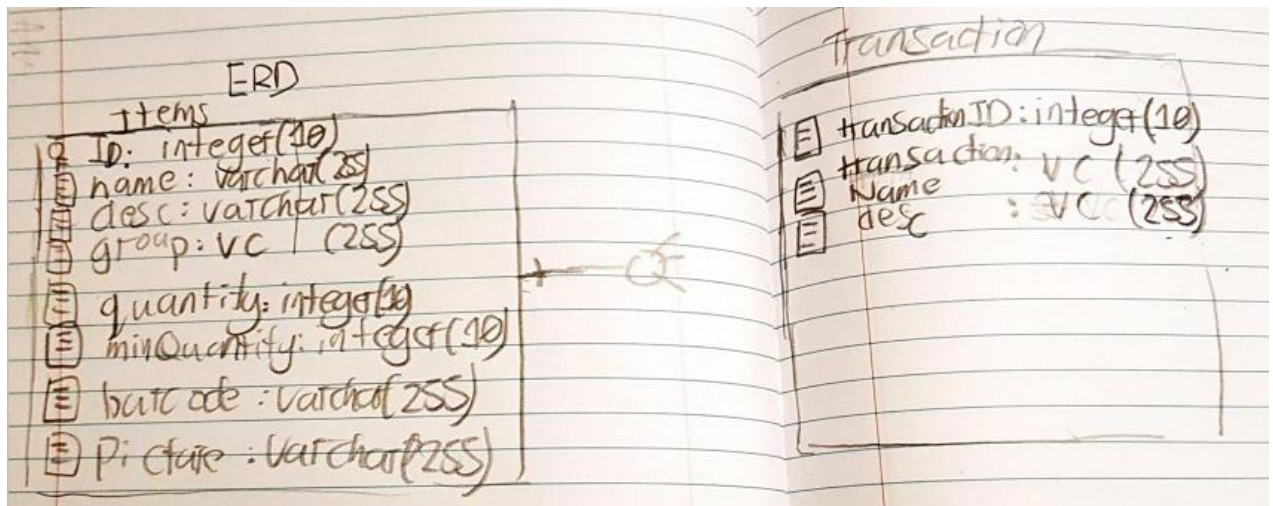 ERD
Items
ID: integer(10)
name: varchar(25)
desc: varchar(255)
group: VC (255)
quantity: integer(10)
minQuantity: integer(10)
barcode: varchar(255)
Picture: varchar(255)
Transaction
transactionID: integer(10)
transaction: VC (255)
Name
desc : VC (255)